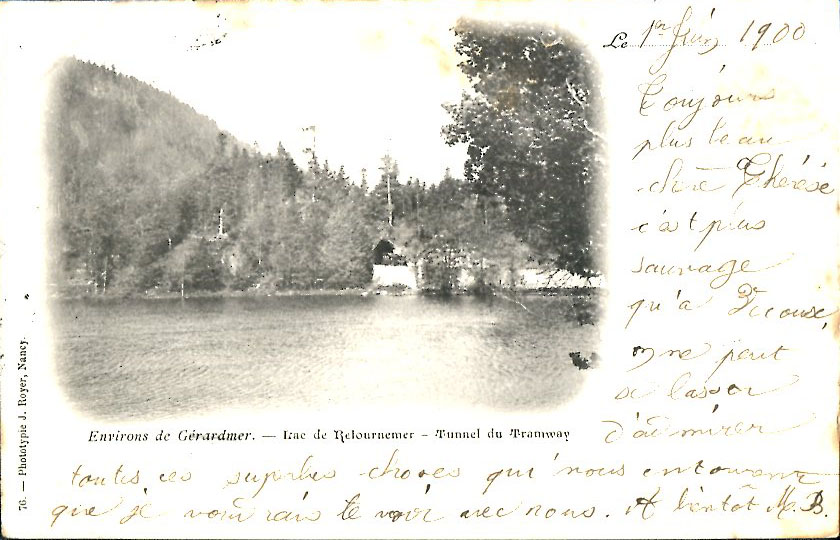 Le 1er Juin 1900
Toujours
plus beau
chère Thérèse
c'est plus
sauvage
qu'à
on ne peut
se lasser
d'admirer
toutes ces superbes choses qui nous entourent
que je voudrais te voir avec nous. A bientôt M. B.
Environs de Gérardmer. — Lac de Retournemer - Tunnel du Tramway
76. — Phototypie J. Royer, Nancy.